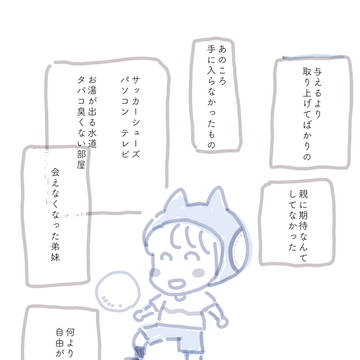 与えるより
取り上げてばかりの
親に期待なんて
してなかった
あのころ
手に入らなかったもの
サッカーシューズ
パソコン テレビ
お湯が出る水道
タバコ臭くない部屋
会えなくなった弟妹
何より
自由が